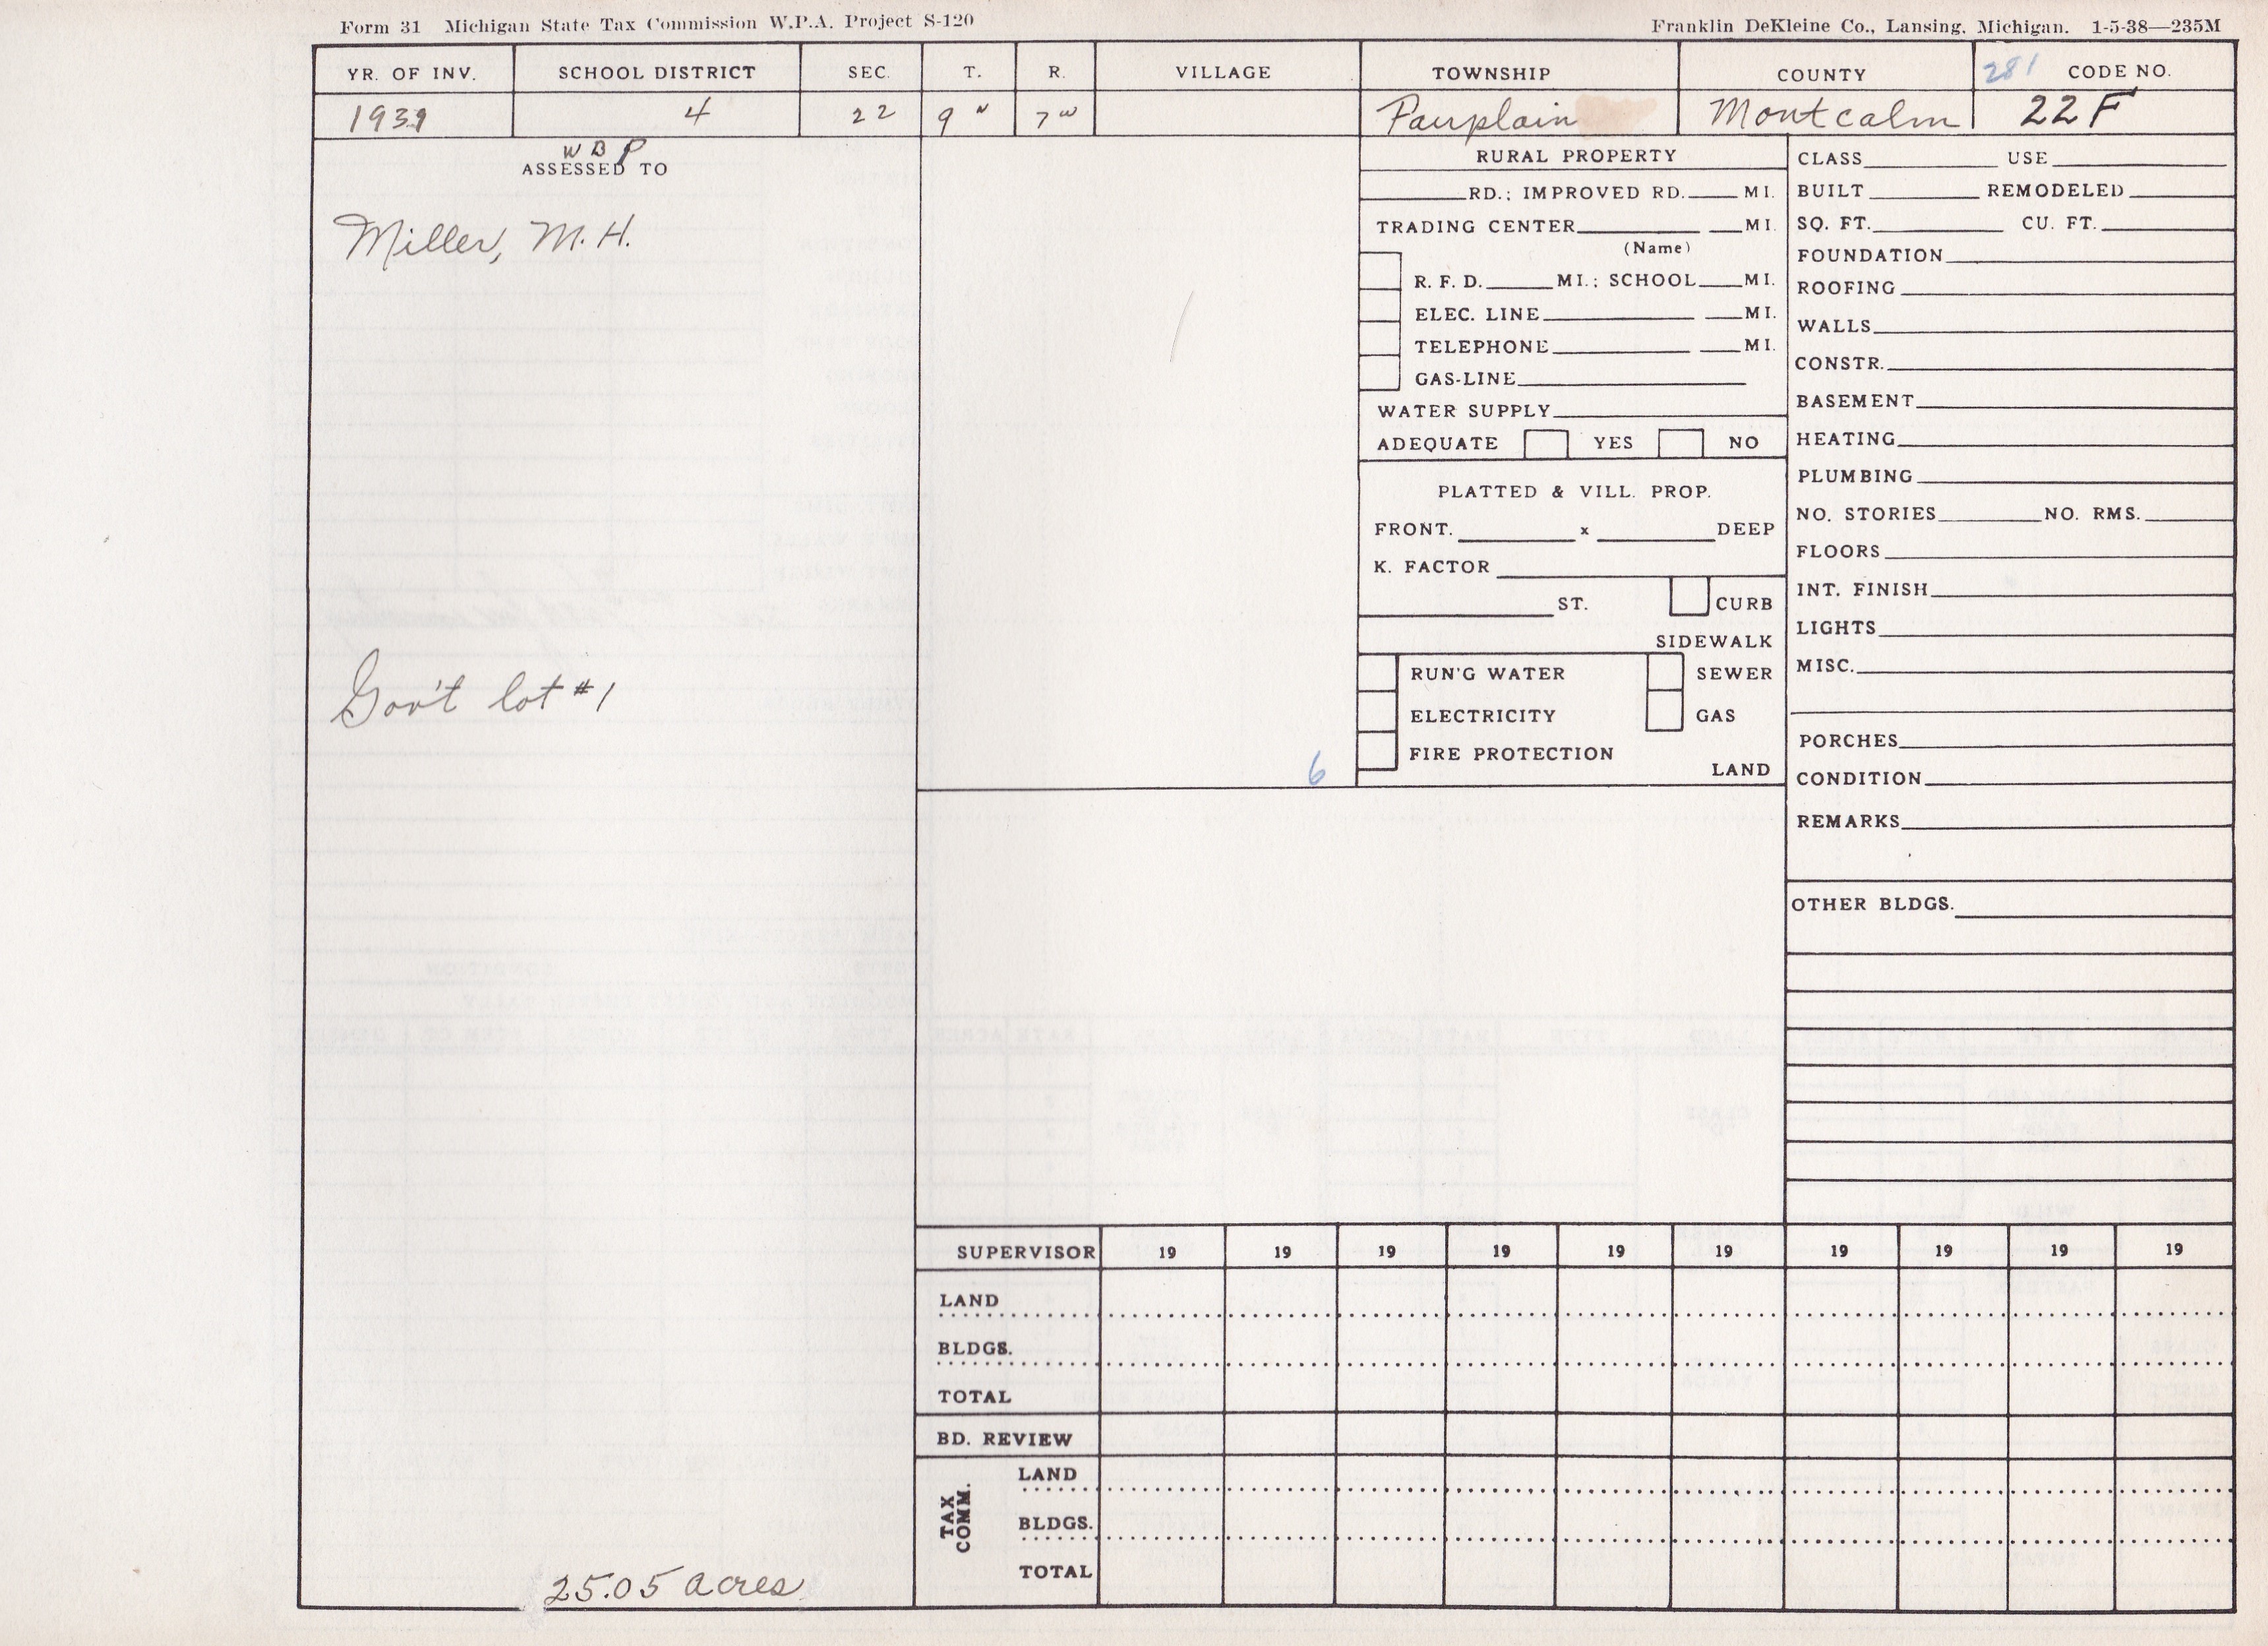 Form 31 Michigan State Tax Commission W.P.A. Project S-120
Franklin DeKleine Co., Lansing, Michigan. 1-5-38—235M
YR. OF INV. SCHOOL DISTRICT SEC. T. R. VILLAGE TOWNSHIP COUNTY 281 CODE NO.
1939 4 22 9 N 7 W Fairplain Montcalm 22 F
W B P
ASSESSED TO
Miller, M. H.
Gov't lot #1
25.05 acres
6
RURAL PROPERTY
RD.; IMPROVED RD. MI.
TRADING CENTER MI.
(Name)
R. F. D. MI.; SCHOOL MI.
ELEC. LINE MI.
TELEPHONE MI.
GAS-LINE
WATER SUPPLY
ADEQUATE YES NO
PLATTED & VILL. PROP.
FRONT. x DEEP
K. FACTOR
ST. CURB
SIDEWALK
RUN'G WATER SEWER
ELECTRICITY GAS
FIRE PROTECTION
LAND
CLASS USE
BUILT REMODELED
SQ. FT. CU. FT.
FOUNDATION
ROOFING
WALLS
CONSTR.
BASEMENT
HEATING
PLUMBING
NO. STORIES NO. RMS.
FLOORS
INT. FINISH
LIGHTS
MISC.
PORCHES
CONDITION
REMARKS
OTHER BLDGS.
SUPERVISOR 19 19 19 19 19 19 19 19 19 19
LAND
BLDGS.
TOTAL
BD. REVIEW
TAX COMM.
LAND
BLDGS.
TOTAL